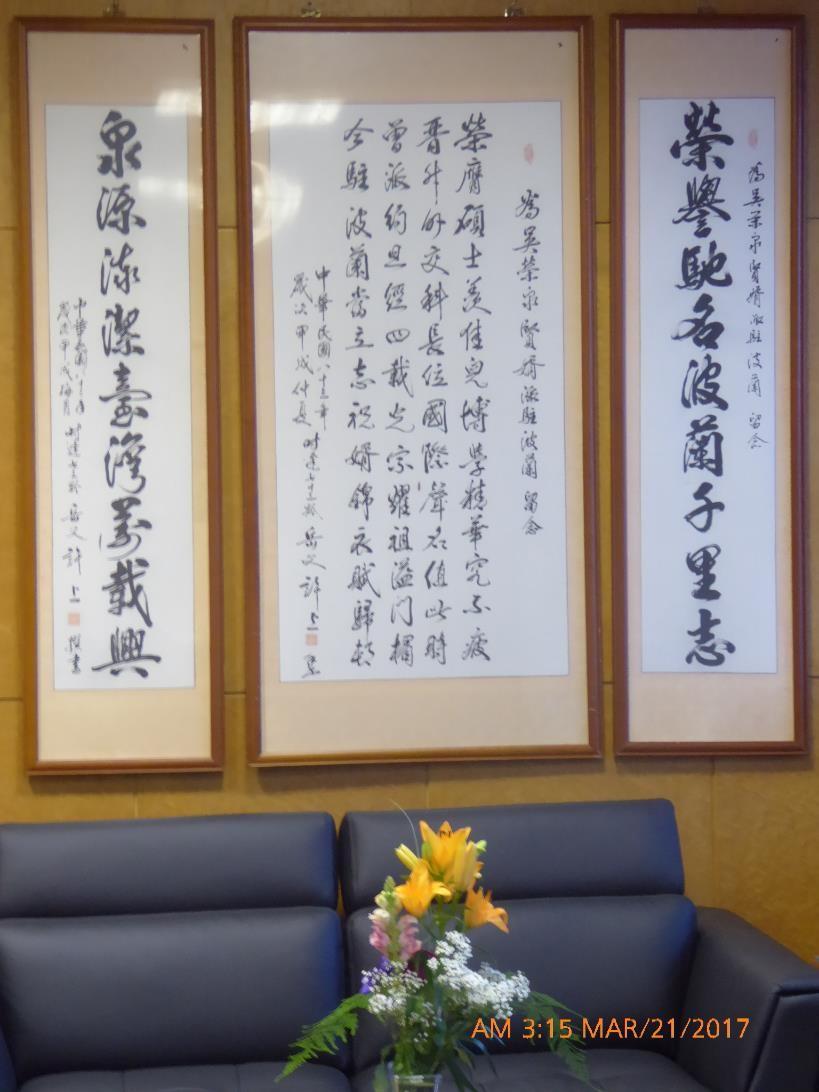 為吳榮泉賢婿派駐波蘭 留念
榮譽馳名波蘭千里志
為吳榮泉賢婿派駐波蘭 留念
榮膺碩士羨佳兒博學精華究不疲
晉升外交科長位國際聲名值此時
曾派約旦經四載光宗耀祖溢門楣
今駐波蘭當立志祝婿錦衣賦歸期
中華民國八十三年
歲次甲戌仲夏 時達七十三齡 岳父 許
泉源流潔臺灣萬載興
中華民國八十三年
歲次甲戌梅月 時達七十三齡 岳父 許 撰書
AM 3:15 MAR/21/2017